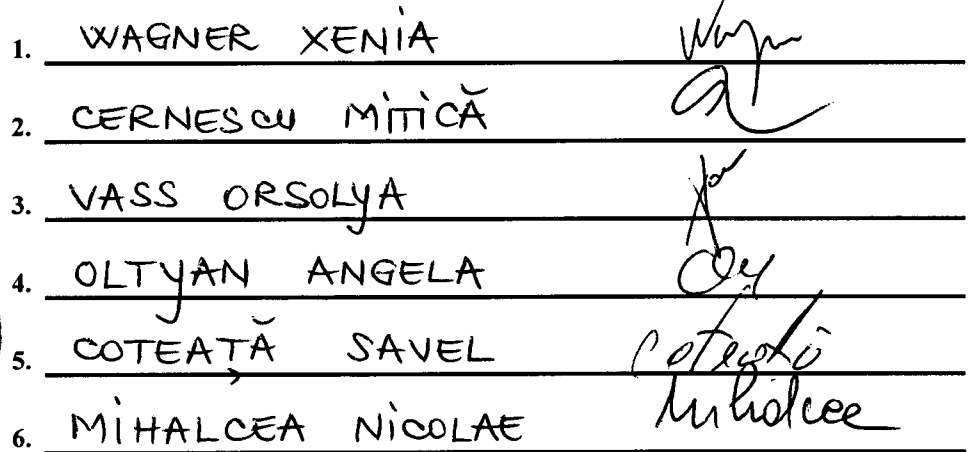 1. WAGNER XENIA
2. CERNESCU MITICĂ
3. VASS ORSOLYA
4. OLTYAN ANGELA
5. COTEAȚĂ SAVEL Coteață
6. MIHALCEA NICOLAE Mihalcea